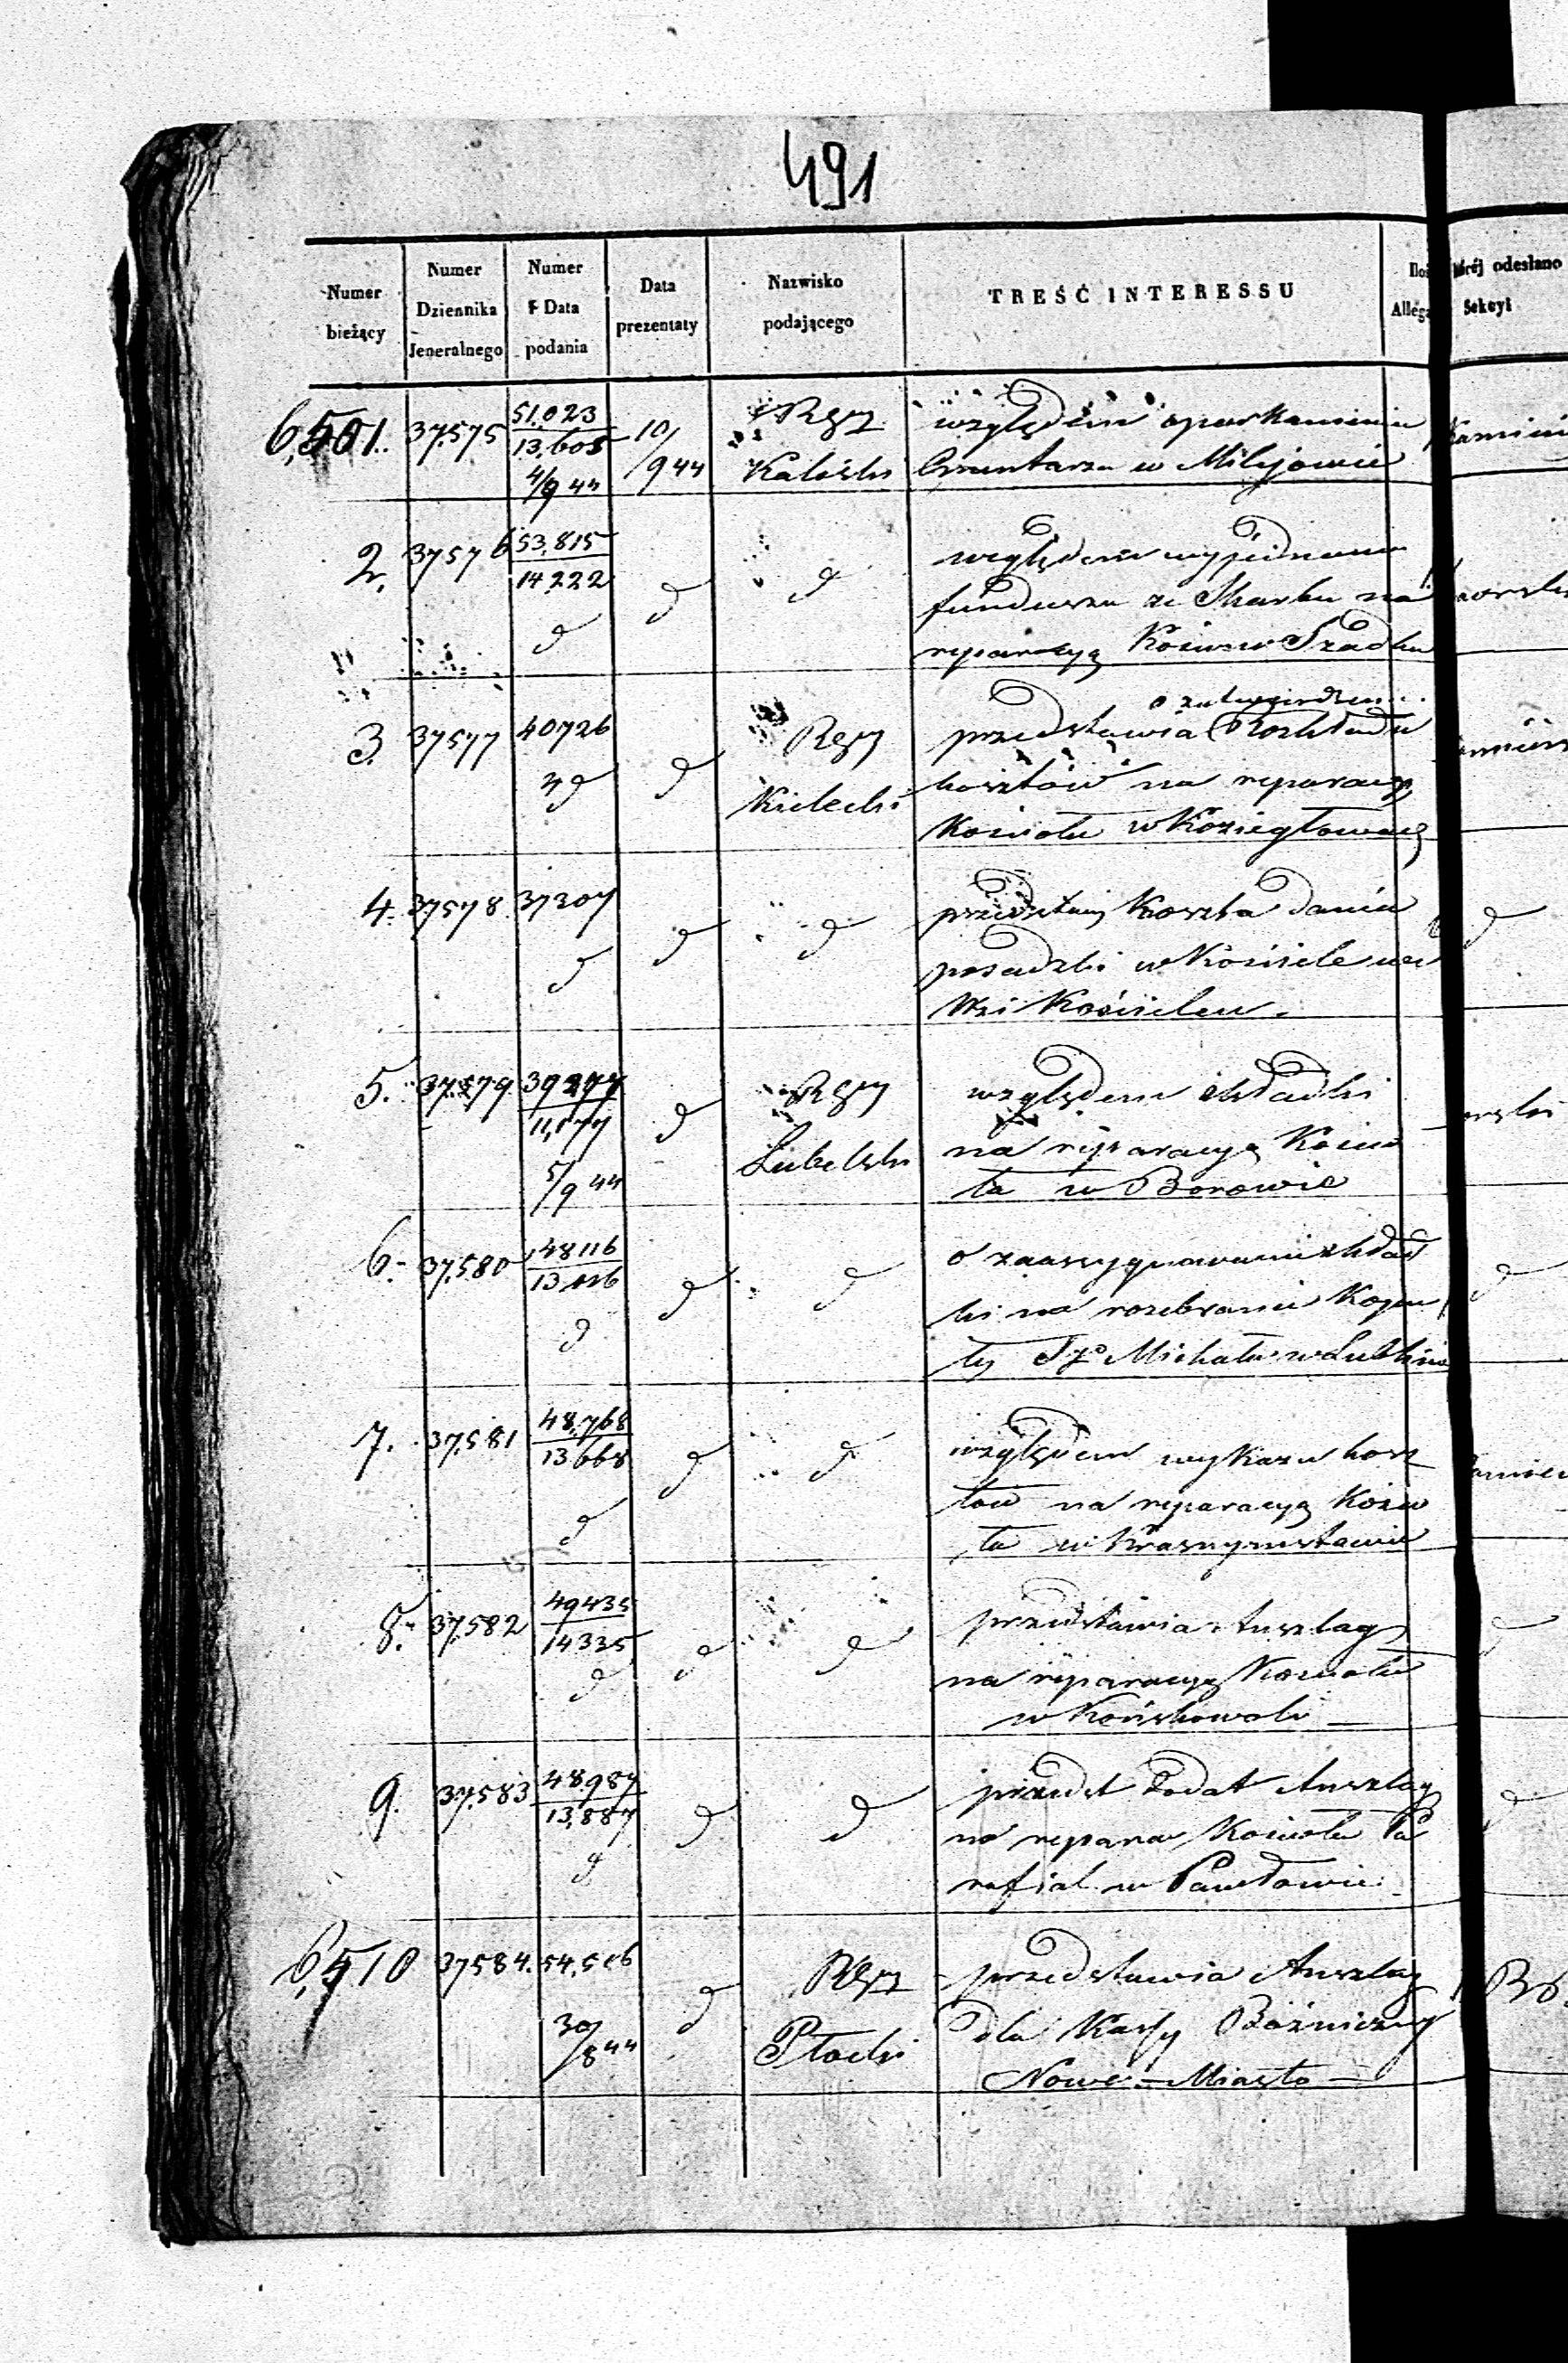 491
Numer bieżący | Numer Dziennika Jeneralnego | Numer i Data podania | Data prezentaty | Nazwisko podającego | TREŚĆ INTERESSU | Sekcyi
6,501. 37575 51.023 / 13.605 4/9 44 10/9 44 Rząd Kaliski
względem oparkanienia
Cmentarza w Milejowie
2. 37576 53,815 / 14222 d d d
względem wyjednania
funduszu ze Skarbu na
reparacyą Kościoła w Szadku
3. 37577 40726 4 d d Rząd Kielecki
o zatwierdzenie
przedstawia Rozkładu
kosztów na reparacyą
Kościoła w Koziegłowach
4. 37578 37307 d d d
przedstawi Koszta dania
posadzki w Kościele we
Wsi Kościelcu.
5. 37579 39277 / 11,177 5/9 44 d Rząd Lubelski
względem składki
na reparacyą Kościo
ła w Borowie
6. 37,580 48116 / 13,116 d d d
o zaassygnowanie skład
ki na rozebranie Kolegia
ty Sgo Michała w Lublinie
7. 37,581 48,768 / 13668 d d d
względem wykazu kosz
tów na reparacyą Kościo
ła w Krasnymstawie
8. 37,582 49435 / 14335 d d d
przedstawia Anszlag
na reparacyą Kościoła
w Końskowoli
9. 37,583 48,987 / 13,887 d d d
przedst dodat Anszlag
na reparac Kościoła Pa
rafial. w Pawłowie
6,510 37584. 54,516 30/8 44 d Rząd Płocki
przedstawia Anszlag
dla Kassy Bóżniczny
Nowe-Miasto